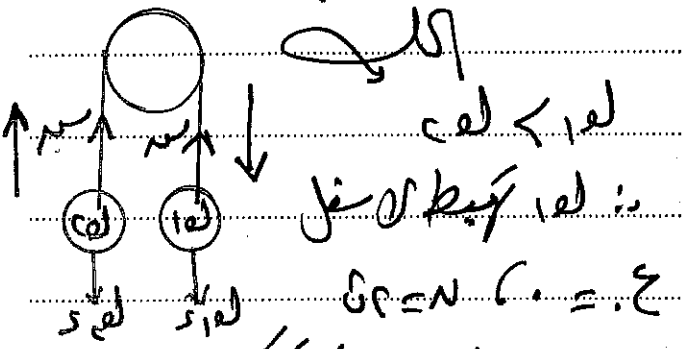 الحل
ك١ > ك٢
∴ ك١ تهبط لأسفل
ع. = ٠ ، ن = ٢ث
شـ شـ
ك١ ك٢
ك١ء ك٢ء